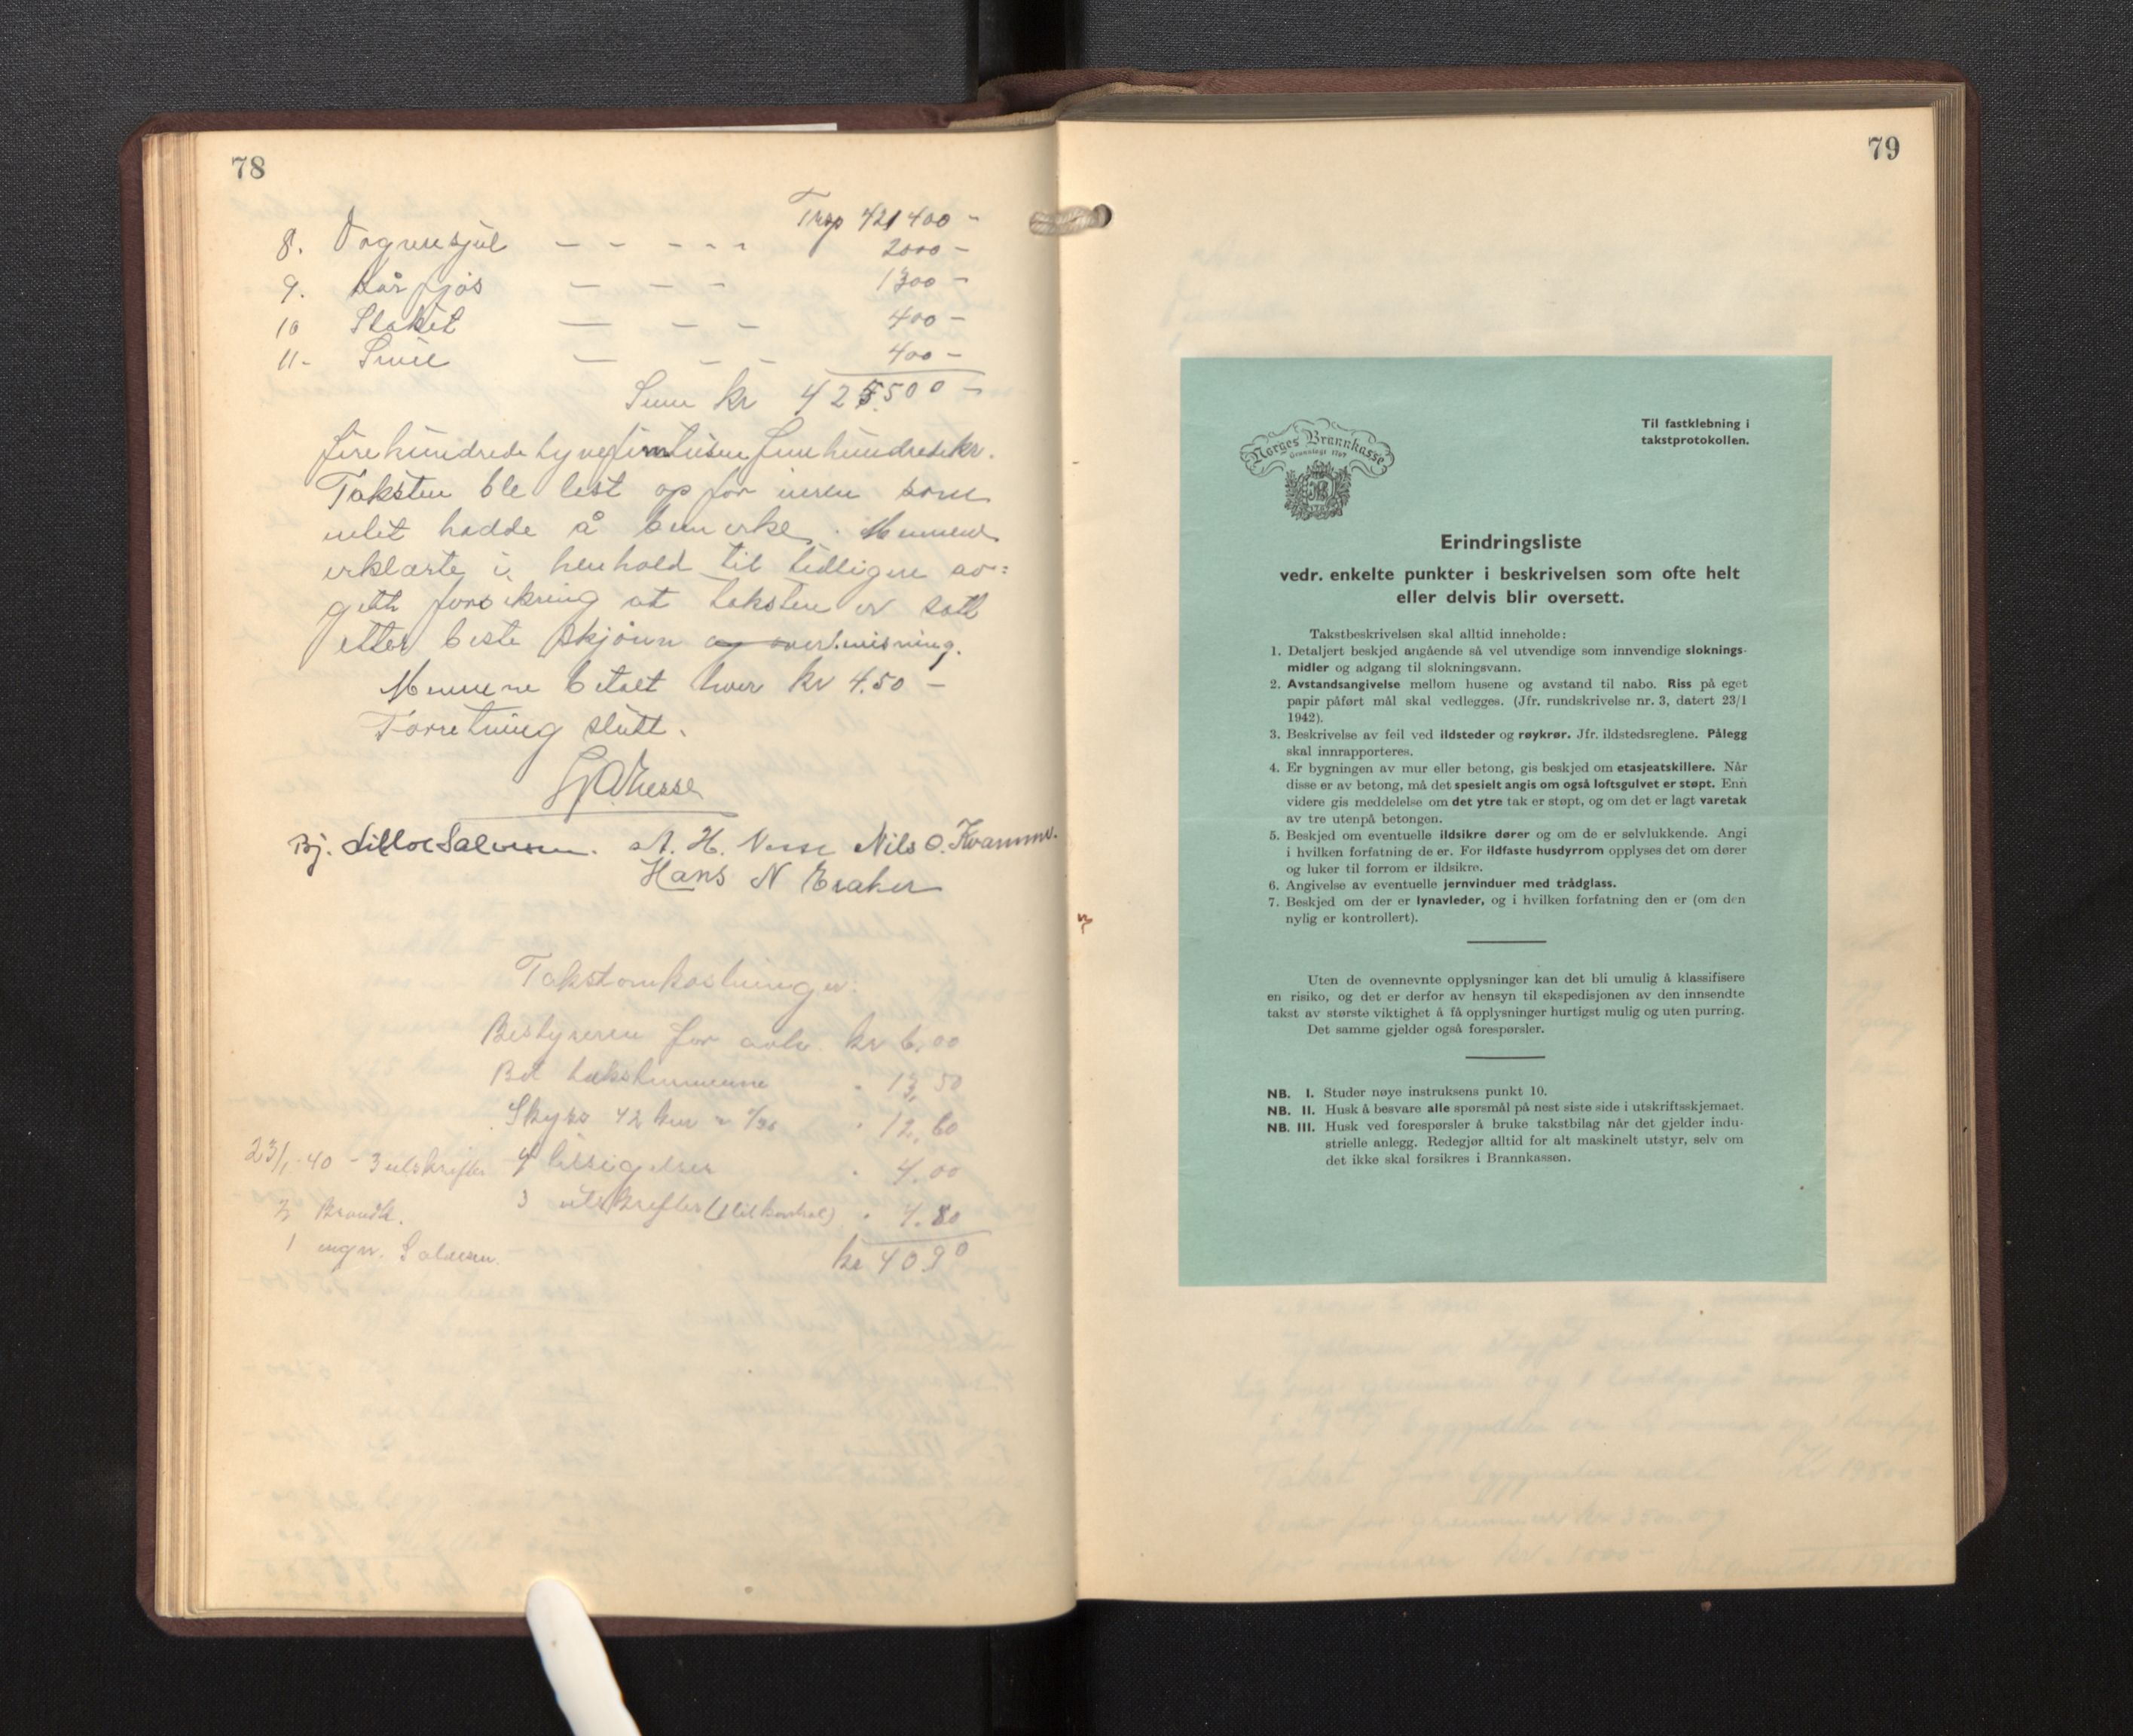 78
Trsp 421400 -
8. Vognskjul - - - - - 2000 -
9. Kårfjøs - - - 1300 -
10 Stakit - - - 400 -
11- Smie - - - 400 -
Sum kr 425500 -
firehundrede tyvefemtusen femhundrede kr.
Taksten ble lest op for eieren som
intet hadde å bemerke. Mennene
erklærte i henhold til tidligere av=
gitt forsikring at taksten er satt
etter beste skjønn og overbevisning.
Mennene betalt hver kr 4.50 -
Forretning slutt.
Bj. Lilloe Salvesen. A. H. Nesse Nils O. Kvamme.
Hans N Eraker
Takstomkostninger.
Bestyreren for avh. kr 6.00
Bet takstmennene " 13,50
Skyss 42 km a /30 " 12,60
23/1-40 - 3 utskrifter 4 tilsigelser " 4.00
2 Brandk. 3 utskrifter (1 til kontrol) " 4.80
1 ingn. Salvesen kr 4090
79
Til fastklebning i
takstprotokollen.
Norges Brannkasse
Grunnlagt 1767
Erindringsliste
vedr. enkelte punkter i beskrivelsen som ofte helt
eller delvis blir oversett.
Takstbeskrivelsen skal alltid inneholde:
1. Detaljert beskjed angående så vel utvendige som innvendige sloknings-
midler og adgang til slokningsvann.
2. Avstandsangivelse mellom husene og avstand til nabo. Riss på eget
papir påført mål skal vedlegges. (Jfr. rundskrivelse nr. 3, datert 23/1
1942).
3. Beskrivelse av feil ved ildsteder og røykrør. Jfr. ildstedsreglene. Pålegg
skal innrapporteres.
4. Er bygningen av mur eller betong, gis beskjed om etasjeatskillere. Når
disse er av betong, må det spesielt angis om også loftsgulvet er støpt. Enn
videre gis meddelelse om det ytre tak er støpt, og om det er lagt varetak
av tre utenpå betongen.
5. Beskjed om eventuelle ildsikre dører og om de er selvlukkende. Angi
i hvilken forfatning de er. For ildfaste husdyrrom opplyses det om dører
og luker til forrom er ildsikre.
6. Angivelse av eventuelle jernvinduer med trådglass.
7. Beskjed om der er lynavleder, og i hvilken forfatning den er (om den
nylig er kontrollert).
Uten de ovennevnte opplysninger kan det bli umulig å klassifisere
en risiko, og det er derfor av hensyn til ekspedisjonen av den innsendte
takst av største viktighet å få opplysninger hurtigst mulig og uten purring.
Det samme gjelder også forespørsler.
NB. I. Studer nøye instruksens punkt 10.
NB. II. Husk å besvare alle spørsmål på nest siste side i utskriftsskjemaet.
NB. III. Husk ved forespørsler å bruke takstbilag når det gjelder indu-
strielle anlegg. Redegjør alltid for alt maskinelt utstyr, selv om
det ikke skal forsikres i Brannkassen.